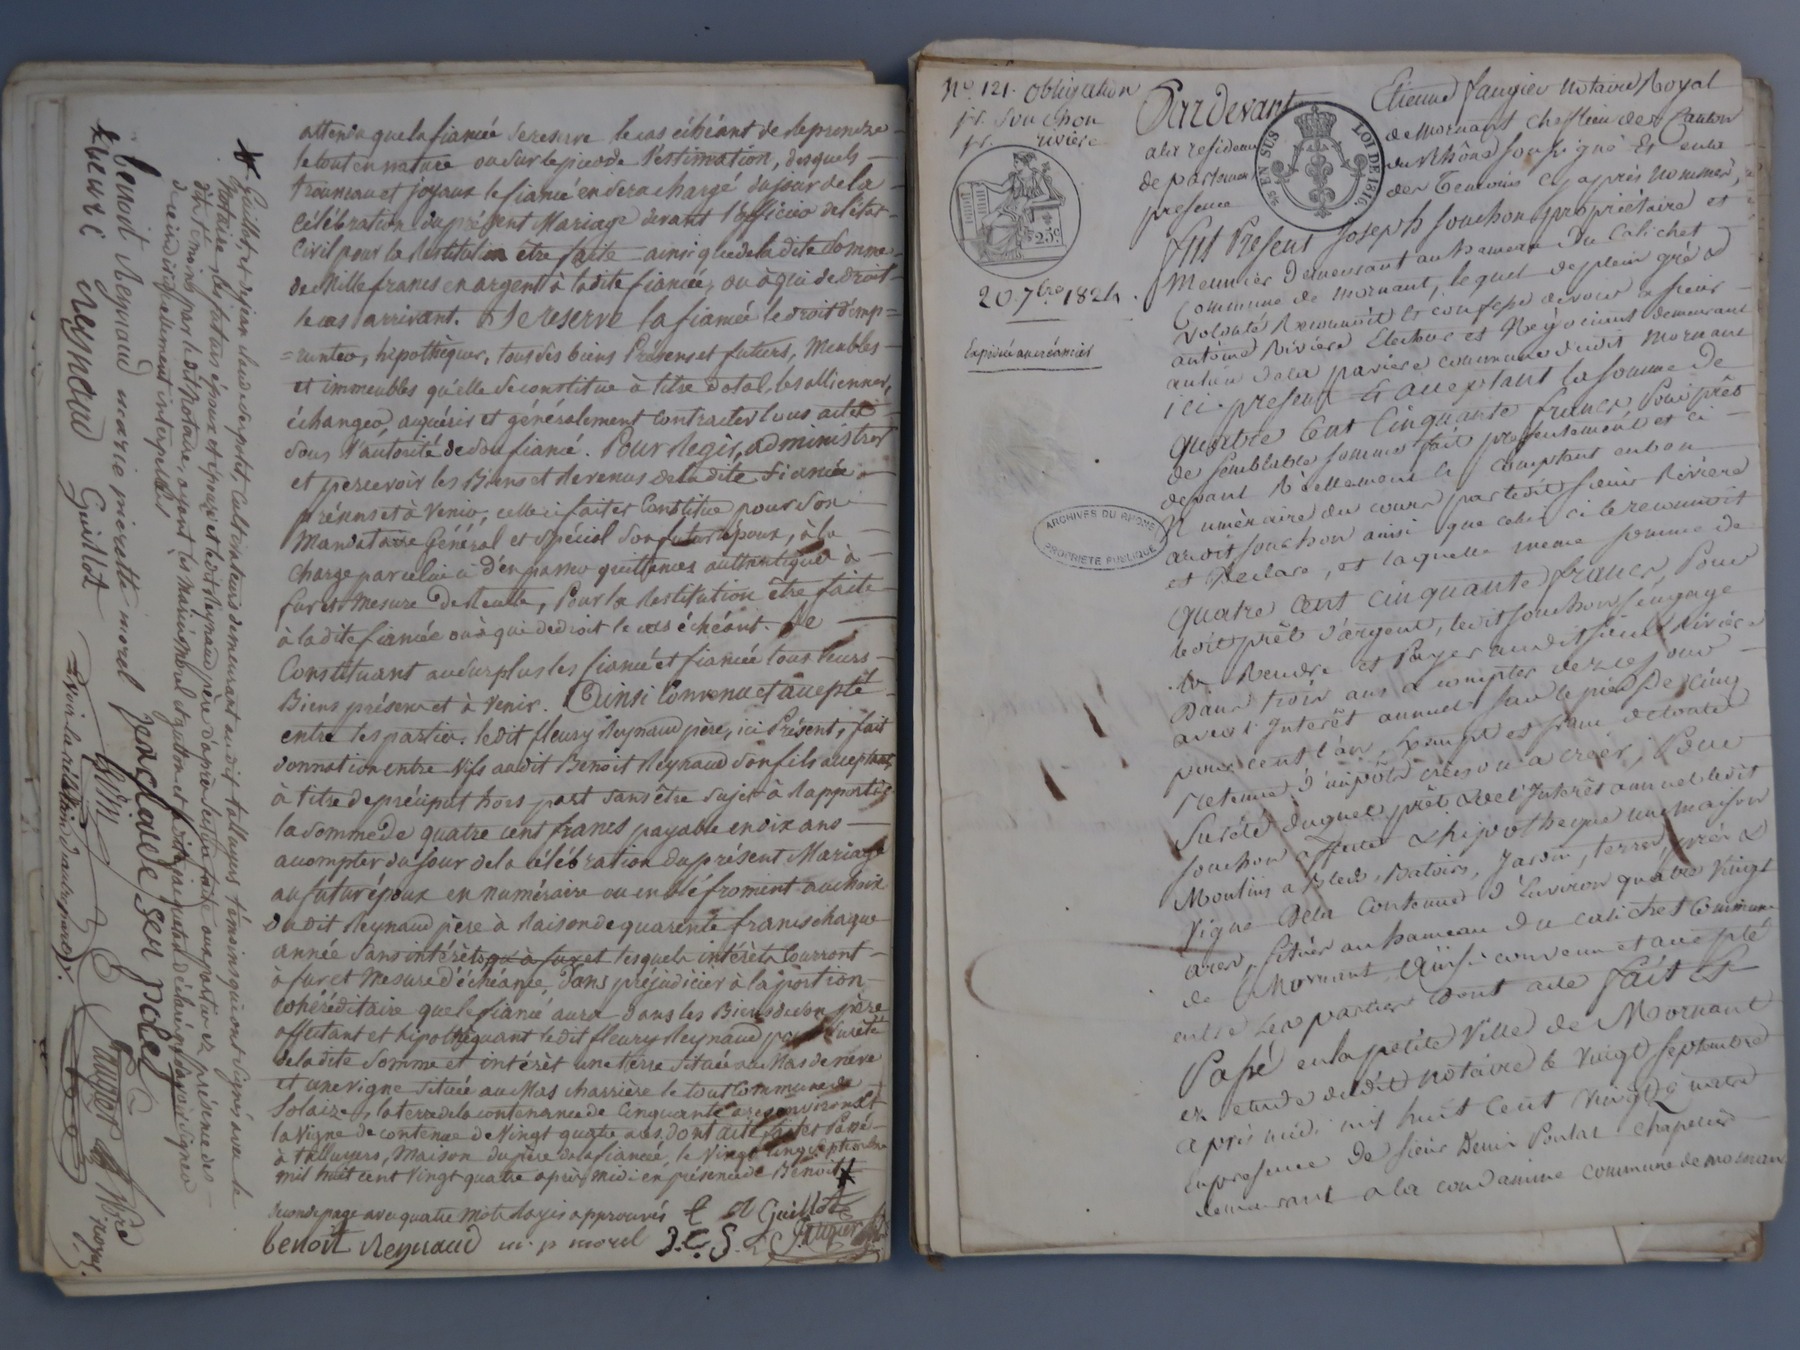 attendu que la fiancée se reserve le cas échéant de reprendre
le tout en nature ou sur le pied de l'estimation, desquels
trousseau et joyaux le fiancé en sera chargé du jour de la
Célébration du présent Mariage devant l'officier de l'état
Civil pour la Restitution être faite ainsi que de la dite Somme
de Mille francs en argent à ladite fiancée, ou à qui de droit
le cas arrivant. Se reserve la fiancée le droit d'emp=
=runter, hipothèquer, tous ses biens Présens et futurs, Meubles
et immeubles qu'elle se constitue à titre dotal, les alliénner,
échanger, aquérir et généralement contracter tous actes
sous l'autorité de son fiancé. Pour Regir, administrer
et percevoir les Biens et Revenus de ladite Fiancée
présens et à Venir, celle ci fait et Constitue pour son
Mandataire Général et spécial son futur époux, à la
charge par celui ci d'en passer quittances authentiques à
fur et Mesure de Recette, Pour la Restitution être faite
à la dite fiancée ou à qui de droit le cas échéant. Se
Constituant au surplus les fiancé et fiancée tous leurs
Biens présens et à Venir. Ainsi Convenu et accepté
entre les parties. le dit fleury Reynaud père, ici Présent, fait
donnation entre Vifs audit Benoit Reynaud son fils acceptant
à titre de préciput hors part sans être sujet à Rapporter
la Somme de quatre cent francs payable en dix ans
a compter du jour de la célébration du présent Mariage
au futur époux en numéraire ou en blé froment au choix
du dit Reynaud père à Raison de quarante francs chaque
année sans intérêts qu'à fur et lesquels intérêts Courront
à fur et Mesure d'échéance, sans préjudicier à la portion
cohéréditaire que le fiancé aura dans les Biens de son père
affectant et hipothéquant le dit fleury Reynaud pour sureté
de la dite Somme et intérêt une terre située au Mas de
et une vigne située au Mas charrière le tout Commune de
Solaize, la terre de la contenance de Cinquante ares environ et
la Vigne de contenue de Vingt quatre ares, dont acte fait et Passé
à talluyers, Maison du père de la fiancée, le Vingt cinq septembre
mil huit cent Vingt quatre après midi en présence de Benoit
Seconde page avec quatre mots Rayés approuvés Guillot
benoit Reynaud m. p morel J.C.S. Faugier
Guillot et de jean claude serpolet, Cultivateurs demeurant audit talluyers témoins requis ont signés avec le
Notaire, les futurs époux et épouze et ledit Reynaud père d'après lecture faite aux parties en présence des
dits témoins par le dit Notaire, ayant les
de ce individuellement interpellés
benoit Reynaud marie pierrette morel jean claude ser polet
fleurÿ reyneaud Guillot Faugier Nre royal.
N.° 121. obligation
pr. Souchon
pr. rivière
2 25c
EN SUS
LOI DE 1816.
20. 7bre 1824.
Expédié au créancier
ARCHIVES DU RHONE
PROPRIETE PUBLIQUE
Pardevant Etienne faugier Notaire Royal
a la residence de Mornant chef lieu de Canton
du Rhône soussigné Et en la
presence des Temoins cy après Nommés,
fut Present Joseph Souchon propriétaire et
Meunier demeurant au hameau du Calichet
Commune de Mornant, lequel de plein gré &
Volonté Reconnoit et confesse devoir a sieur
antoine Rivière Electeur et Négociant demeurant
au lieu de la pavière commune dudit Mornant
ici present Et acceptant la somme de
quatre Cent Cinquante francs Pour prêt
de semblable somme fait presentement et ci
devant Réellement & comptant en bon
Numéraire du cours par ledit sieur Rivière
audit Souchon ainsi que celui ci le reconnoit
et Déclare, et laquelle meme somme de
quatre Cent cinquante francs, Pour
ledit prêt d'argent, ledit Souchon s'engage
de Rendre et Payer audit sieur Rivière
Dans trois ans a compter de ce jour
avec l'Intérêt annuel sur le pied De cinq
pour cent l'an, Exempt et franc de toute
retenue d'impôts créés ou a créer; Pour
Sureté duquel prêt & de l'Intérêt annuel ledit
Souchon affecte & hipotheque une maison
Moulins a Bled, Batoirs, Jardin, terres, prés &
Vigne De la contenue d'Environ quatre Vingt
ares, situés au hameau du Calichet Commune
de Mornant, Ainsi convenu et accepté
entre les parties Dont acte fait Et
Passé en la petite Ville de Mornant
en etude dudit Notaire le Vingt septembre
après midi mil huit Cent Vingt quatre
En presence de sieur Denis Poulat chapelier
demeurant a la condamine commune de Mornant